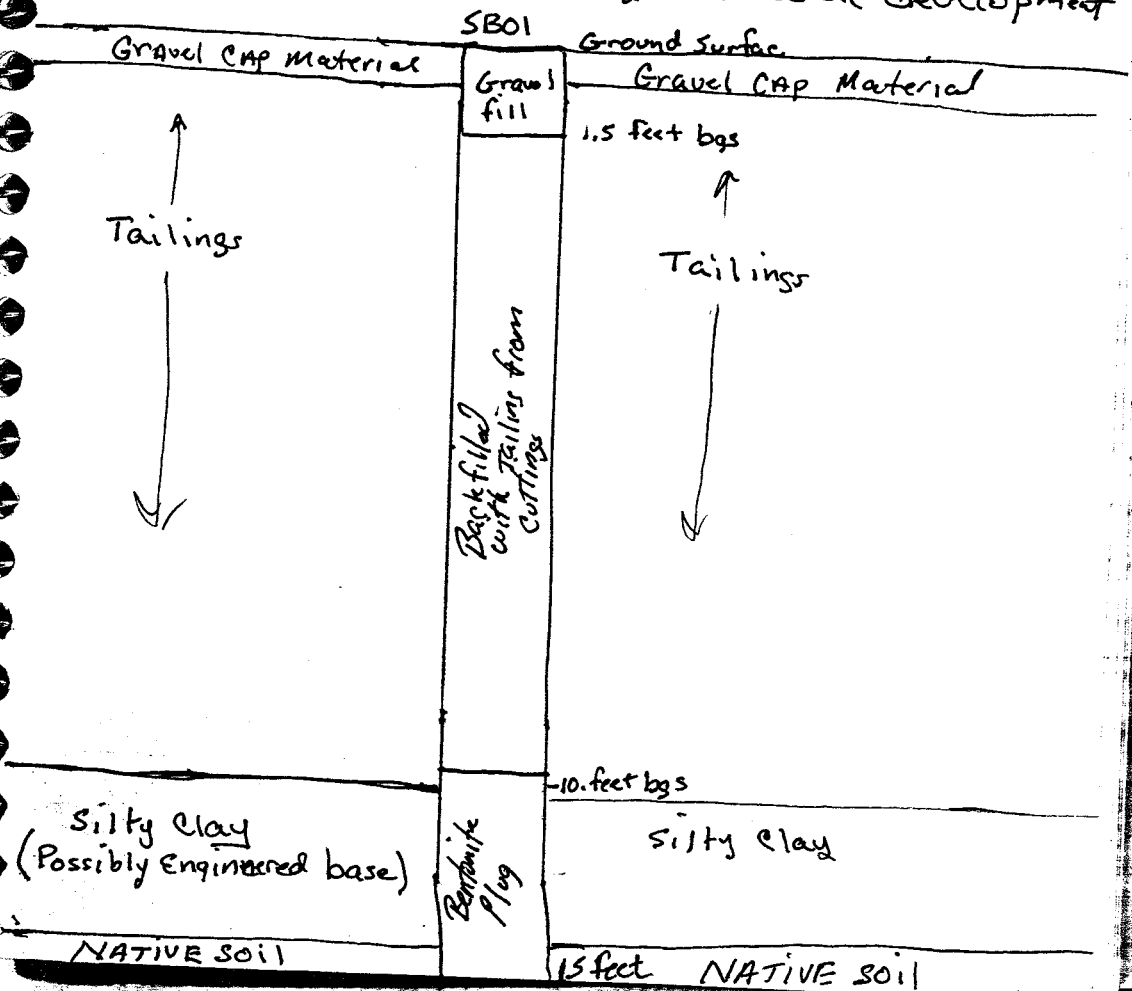 Development
SB01
Ground Surfac
Gravel CAP Material
Gravel
fill
Gravel CAP Material
1.5 feet bgs
Tailings
Tailings
Backfilled
with Tailins from
cuttings
10. feet bgs
Silty Clay
(Possibly Engineered base)
Silty Clay
Bentonite
Plug
NATIVE SOil
15 feet
NATIVE SOil